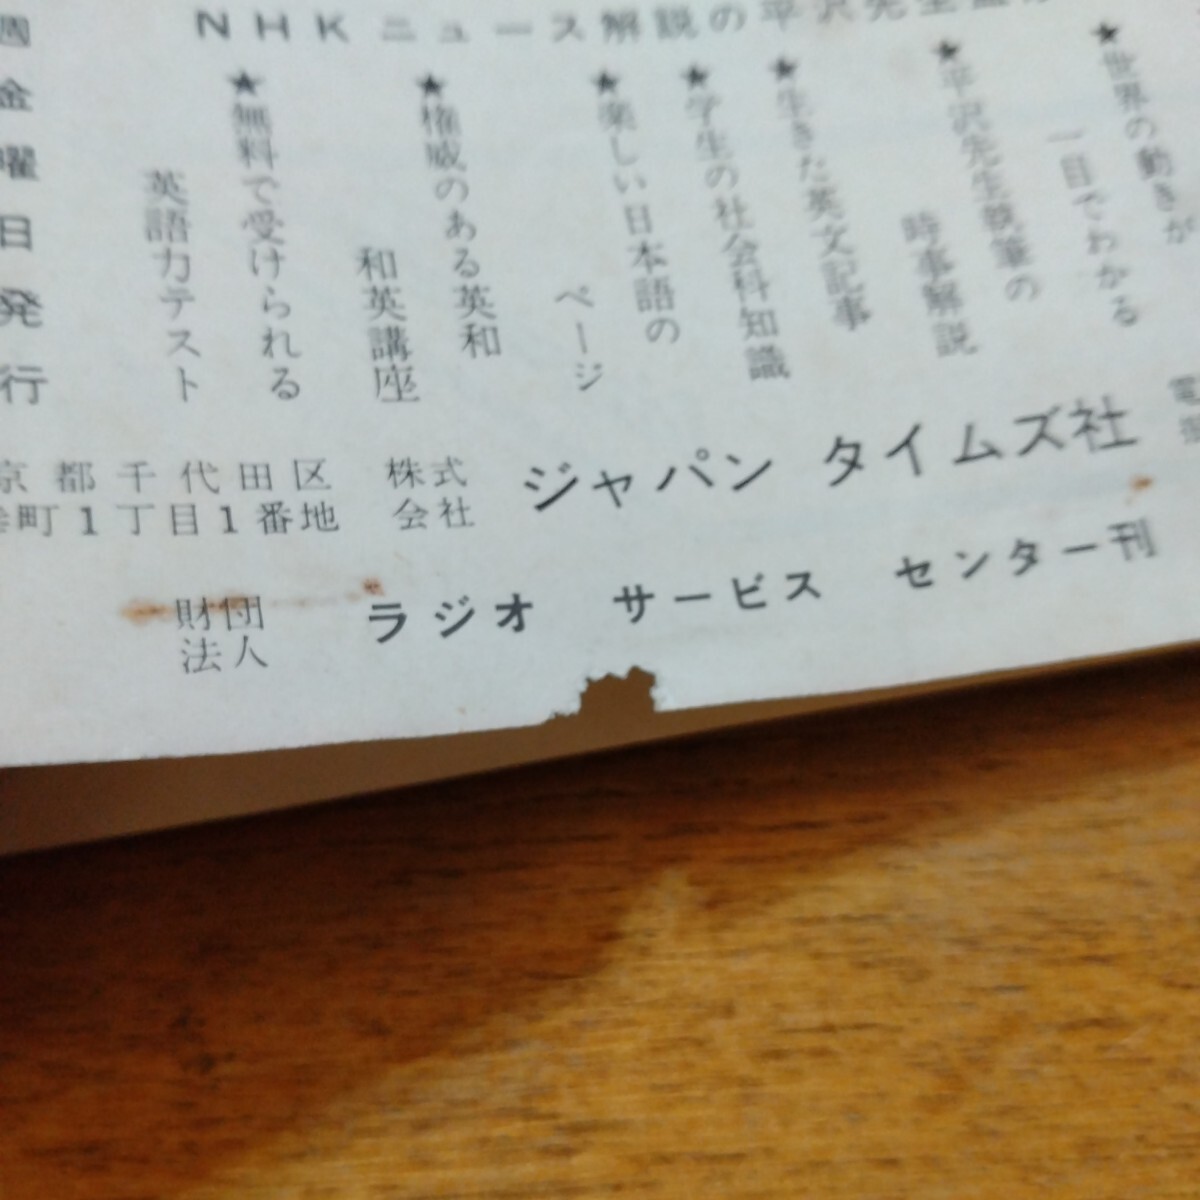 NHKニュース解説の平沢先生
★世界の動きが
一目でわかる
★平沢先生執筆の
時事解説
★生きた英文記事
★学生の社会科知識
★楽しい日本語の
ページ
★権威のある英和
和英講座
★無料で受けられる
英語力テスト
週金曜日発行
京都千代田区
町1丁目1番地
株式会社
ジャパン タイムズ社
電
財団法人
ラジオ サービス センター刊